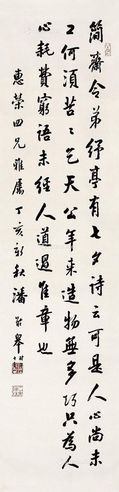 簡齋令弟紓亭有七夕詩云可是人心尚未
工何須苦苦乞天公年來造物無多巧只為人
心耗費窮語未經人道過雅章也
惠榮四兄雅屬丁亥新秋潘齡皋